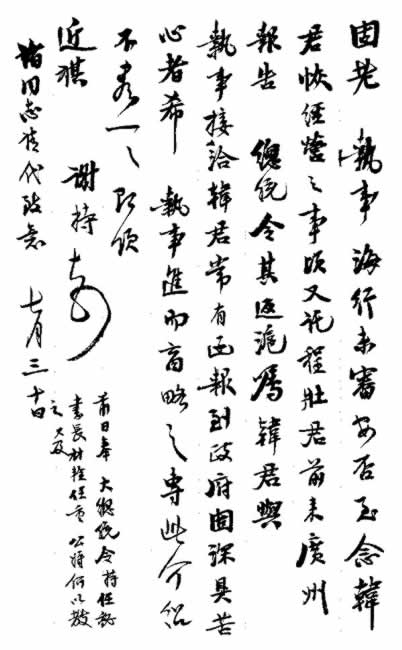 固老　執事海行未審安否至念韓
君恢經營之事頃又託程壯君前來廣州
報告　總統令其返滬囑韓君與
執事接洽韓君常有函報到政府固深具苦
心者希　執事進而商略之專此介紹
不盡一一即頌
近祺　謝持
諸同志代致意　七月三十日
前日奉大總統令持任秘
書長材輕任重公將何以教
之　又及